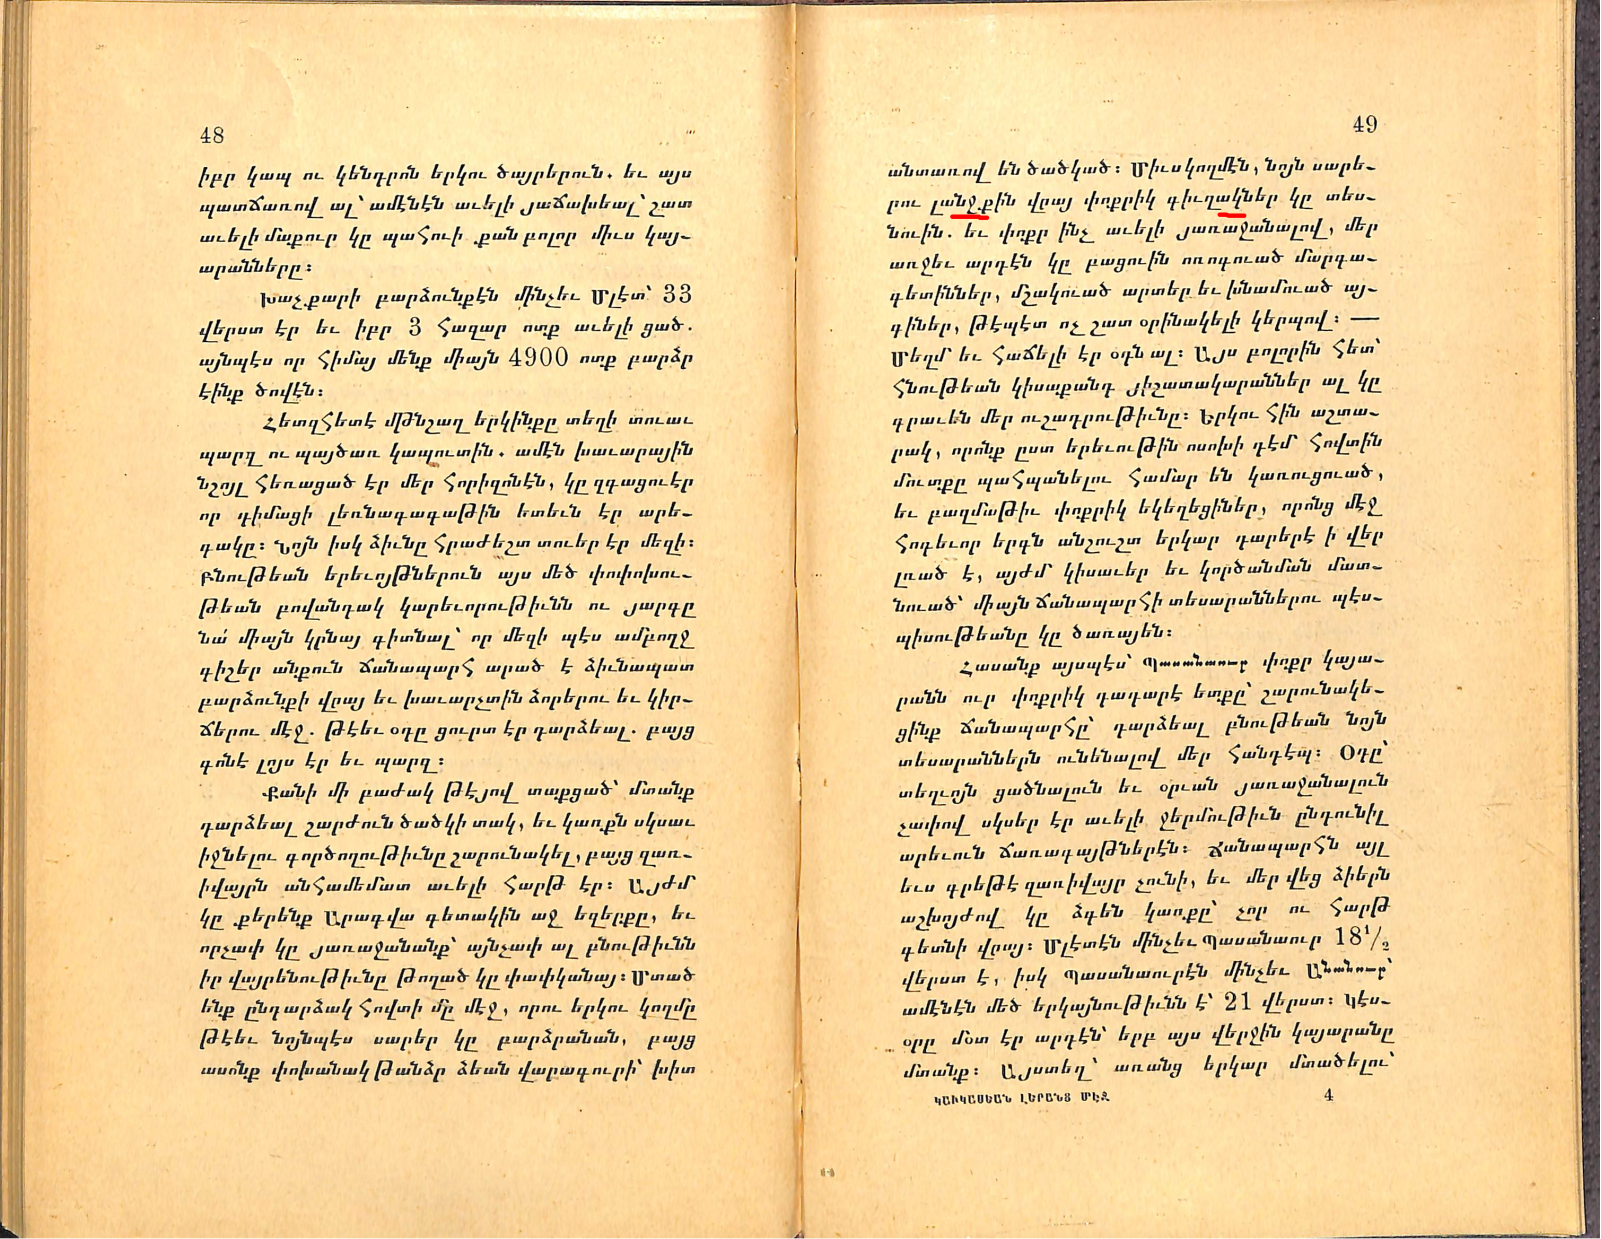 48
իբր կապ ու կենդրոն երկու ծայրերուն. եւ այս
պատճառով ալ՝ ամէնէն աւելի յաճախեալ՝ շատ
աւելի մաքուր կը պահուի քան բոլոր միւս կայ-
արանները։
Խաչքարի բարձունքէն մինչեւ Մլէտ՝ 33
վերստ էր եւ իբր 3 հազար ոտք աւելի ցած.
այնպէս որ հիմայ մենք միայն 4900 ոտք բարձր
էինք ծովէն։
Հետզհետէ մթնշաղ երկինքը տեղի տուաւ
պարզ ու պայծառ կապուտին. ամէն խաւարային
նշոյլ հեռացած էր մեր հորիզոնէն, կը զգացուէր
որ դիմացի լեռնագագաթին ետեւն էր արե-
գակը։ Նոյն իսկ ձիւնը հրաժեշտ տուեր էր մեզի։
Բնութեան երեւոյթներուն այս մեծ փոփոխու-
թեան բովանդակ կարեւորութիւնն ու յարգը
նա՛ միայն կրնայ գիտնալ՝ որ մեզի պէս ամբողջ
գիշեր անքուն ճանապարհ արած է ձիւնապատ
բարձունքի վրայ եւ խաւարչտին ձորերու եւ կիր-
ճերու մէջ. թէեւ օդը ցուրտ էր դարձեալ. բայց
գոնէ լոյս էր եւ պարզ։
Քանի մի բաժակ թէյով տաքցած՝ մտանք
դարձեալ շարժուն ծածկի տակ, եւ կառքն սկսաւ
իջնելու գործողութիւնը շարունակել, բայց զառ-
իվայրն անհամեմատ աւելի հարթ էր։ Այժմ
կը քերենք Արագվա գետակին աջ եզերքը, եւ
որչափ կը յառաջանանք՝ այնչափ ալ բնութիւնն
իր վայրենութիւնը թողած կը փափկանայ։ Մտած
ենք ընդարձակ հովտի մը մէջ, որու երկու կողմը
թէեւ նոյնպէս սարեր կը բարձրանան, բայց
ասոնք փոխանակ թանձր ձեան վարագուրի՝ խիտ
49
անտառով են ծածկած։ Միւս կողմէն, նոյն սարե-
րու լանջքին վրայ փոքրիկ գիւղակներ կը տես-
նուին. եւ փոքր ինչ աւելի յառաջանալով, մեր
առջեւ արդէն կը բացուին ոռոգուած մարգա-
գետիններ, մշակուած արտեր եւ խնամուած այ-
գիներ, թէպէտ ոչ շատ օրինակելի կերպով։ —
Մեղմ եւ հաճելի էր օդն ալ։ Այս բոլորին հետ՝
հնութեան կիսաքանդ յիշատակարաններ ալ կը
գրաւեն մեր ուշադրութիւնը։ Երկու հին աշտա-
րակ, որոնք ըստ երեւութին ոսոխի դէմ հովտին
մուտքը պահպանելու համար են կառուցուած,
եւ բազմաթիւ փոքրիկ եկեղեցիներ, որոնց մէջ
հոգեւոր երգն անշուշտ երկար դարերէ ի վեր
լռած է, այժմ կիսաւեր եւ կործանման մատ-
նուած՝ միայն ճանապարհի տեսարաններու պէս-
պիսութեանը կը ծառայեն։
Հասանք այսպէս՝ Պասանաուր փոքր կայա-
րանն ուր փոքրիկ դադարէ ետքը՝ շարունակե-
ցինք ճանապարհը՝ դարձեալ բնութեան նոյն
տեսարաններն ունենալով մեր հանդէպ։ Օդը՝
տեղւոյն ցածնալուն եւ օրւան յառաջանալուն
չափով սկսեր էր աւելի ջերմութիւն ընդունիլ
արեւուն ճառագայթներէն։ Ճանապարհն այլ
եւս գրեթէ զառիվայր չունի, եւ մեր վեց ձիերն
աշխոյժով կը ձգեն կառքը՝ չոր ու հարթ
գետնի վրայ։ Մլէտէն մինչեւ Պասանաուր 18¹/₂
վերստ է, իսկ Պասանաուրէն մինչեւ Անանուր՝
ամէնէն մեծ երկայնութիւնն է՝ 21 վերստ։ Կէս-
օրը մօտ էր արդէն՝ երբ այս վերջին կայարանը
մտանք։ Այստեղ՝ առանց երկար մտածելու՝
ԿԱՒԿԱՍԵԱՆ ԼԵՐԱՆՑ ՄԷՋ 4